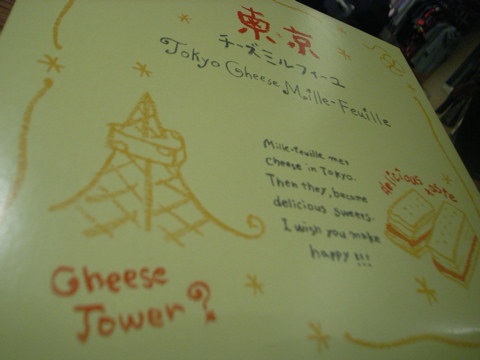 東京
チーズミルフィーユ
Tokyo Cheese Mille-Feuille
Mille-feuille met
cheese in Tokyo.
Then they, became
delicious sweets.
I wish you make
happy!!!
delicious taste
Cheese
Tower?